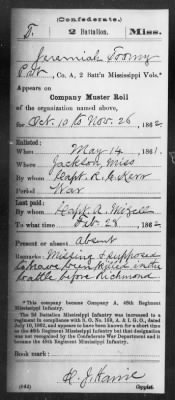 (Confederate.)
T. 2 Battalion. Miss.
Jeremiah Toomy
Pvt, Co. A, 2 Batt'n Mississippi Vols.*
Appears on
Company Muster Roll
of the organization named above,
for Oct. 10 to Nov. 26, 1862
Enlisted:
When May 14, 1861.
Where Jackson, Miss
By whom Capt. R. A. Kerr
Period War
Last paid:
By whom Capt. A. Mizell
To what time Feb. 28, 1862
Present or absent absent
Remarks: Missing & supposed
to have been killed in the
battle before Richmond
*This company became Company A, 48th Regiment
Mississippi Infantry.
The 2d Battalion Mississippi Infantry was increased to
a regiment in compliance with S. O. No. 159, A. & I. G. O., dated
July 10, 1862, and appears to have been known for a short time
as the 48th Regiment Mississippi Infantry but that designation
was not recognized by the Confederate War Department and it
became the 48th Regiment Mississippi Infantry.
Book mark:
(642) Copyist.